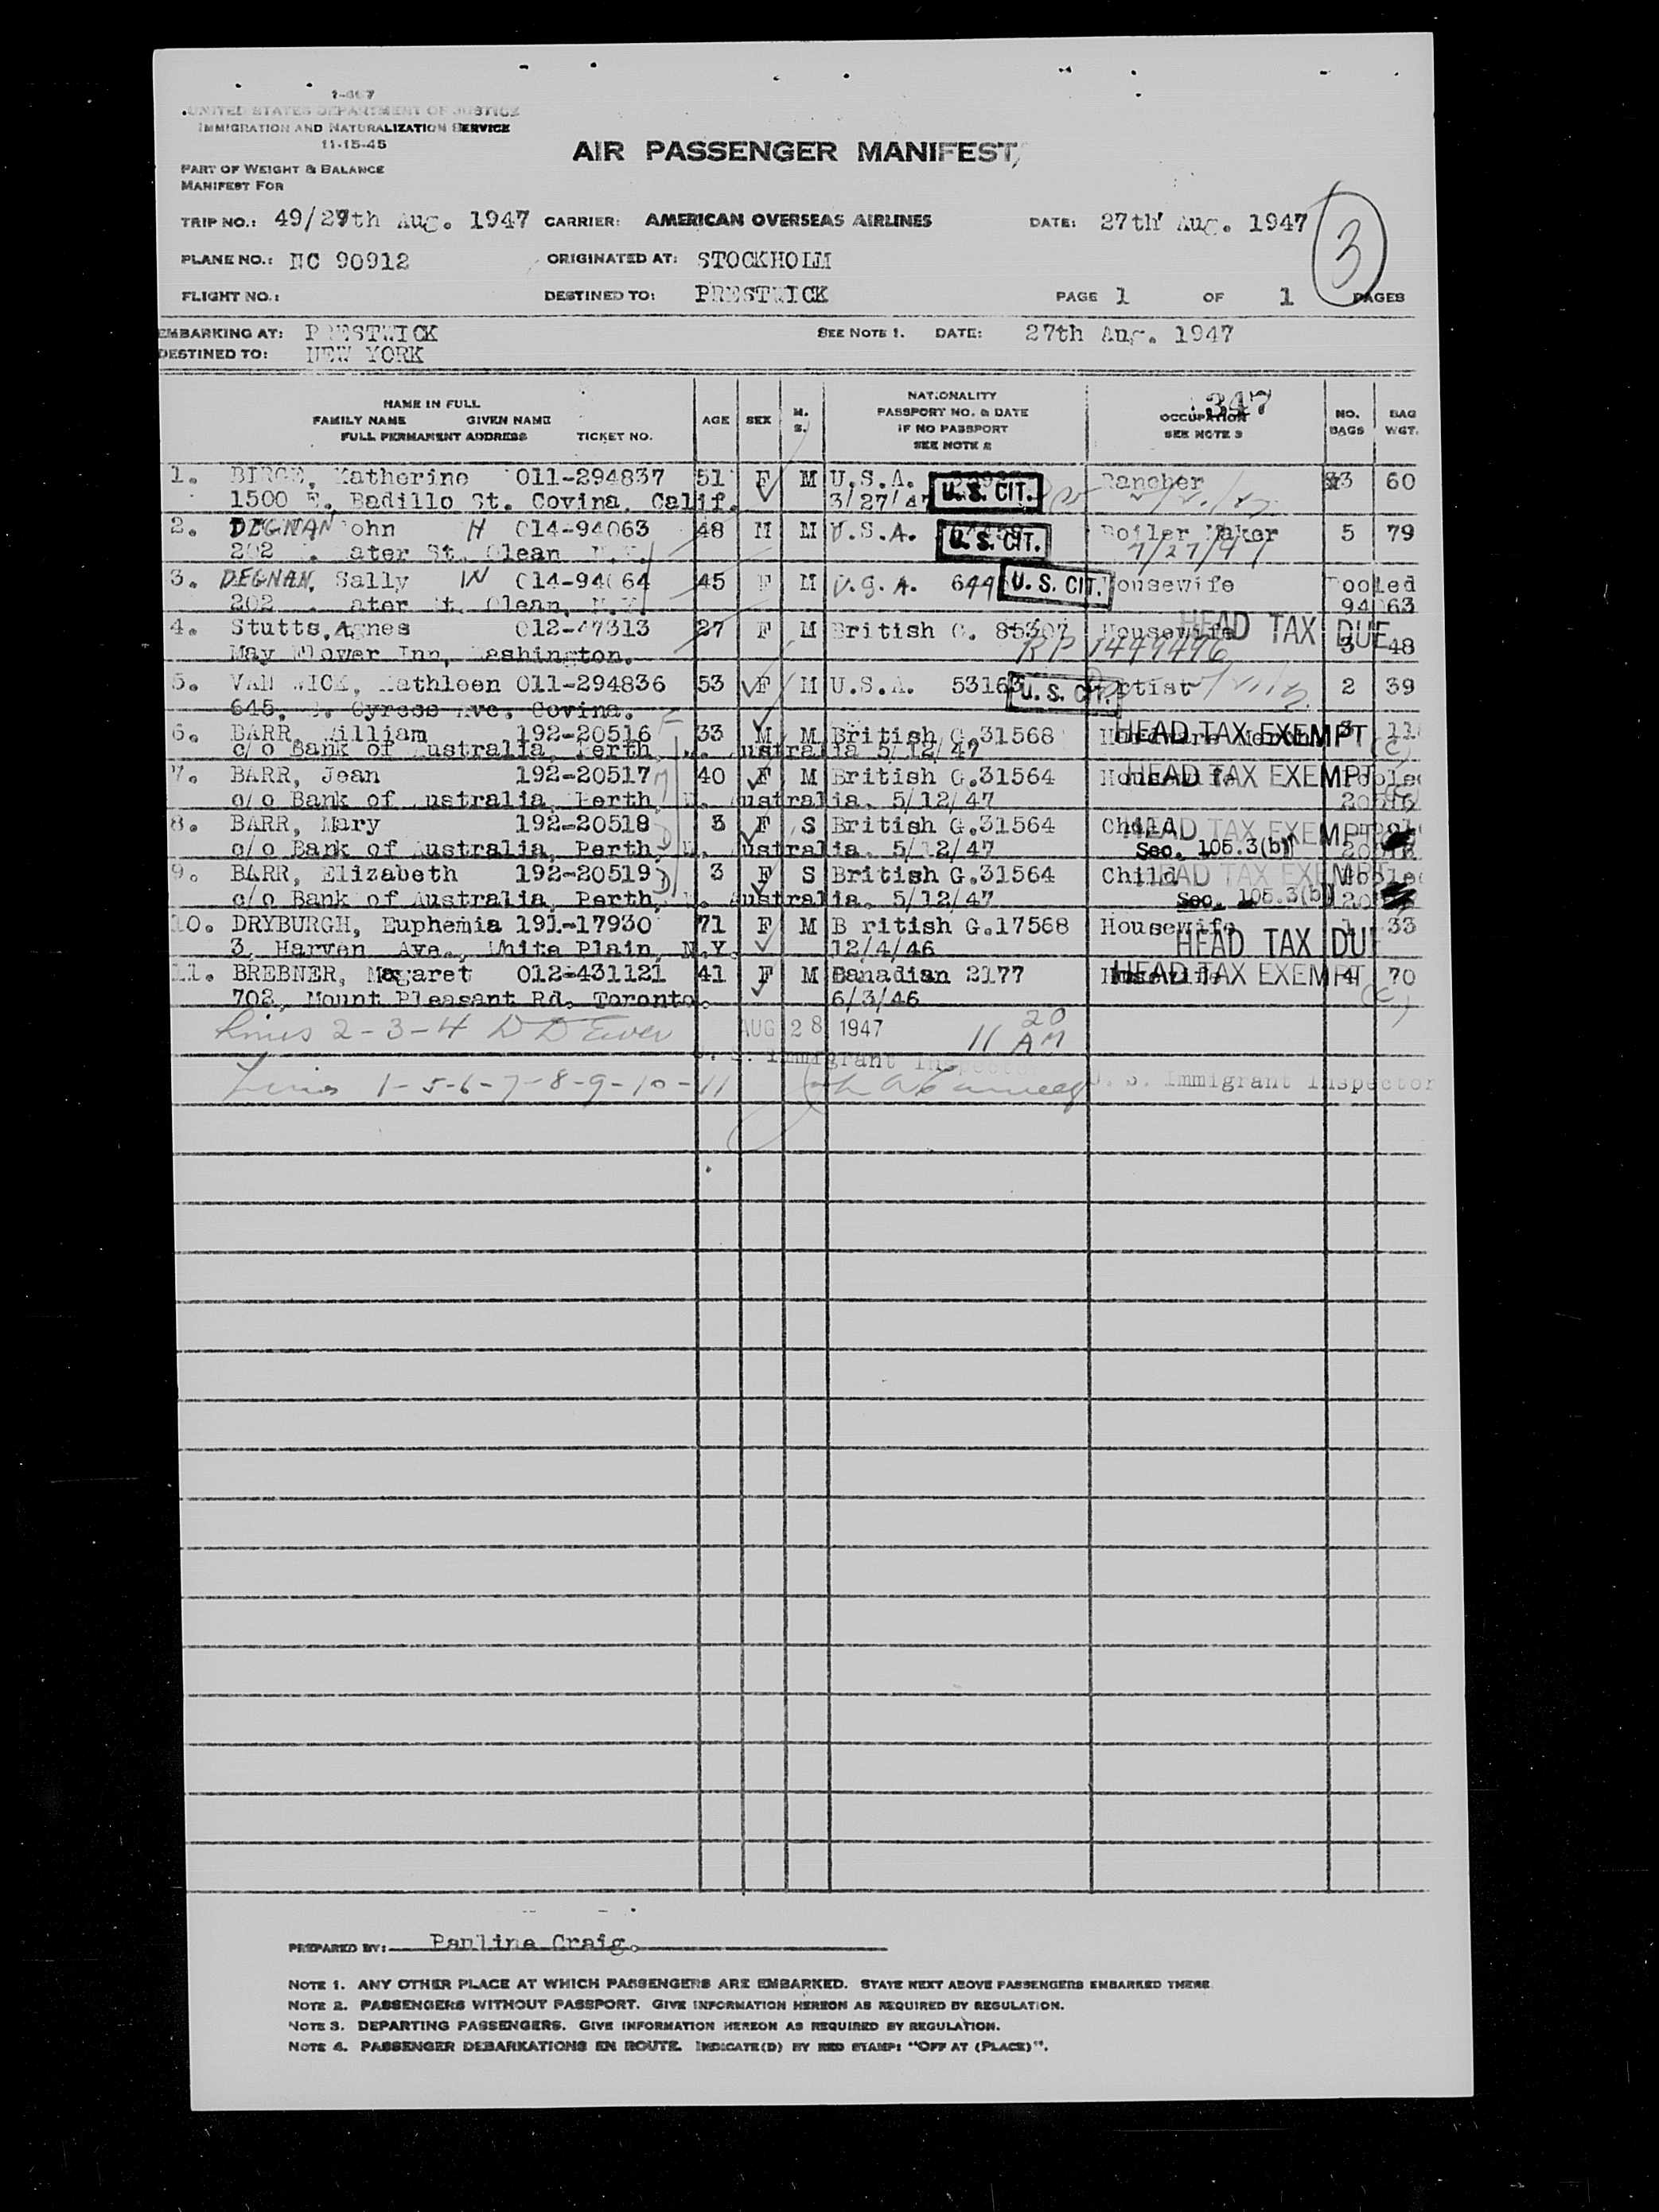 1-467
UNITED STATES DEPARTMENT OF JUSTICE
IMMIGRATION AND NATURALIZATION SERVICE
11-15-45
AIR PASSENGER MANIFEST
PART OF WEIGHT & BALANCE
MANIFEST FOR
TRIP NO.: 49/27th Aug. 1947 CARRIER: AMERICAN OVERSEAS AIRLINES DATE: 27th Aug. 1947
3
PLANE NO.: NC 90912 ORIGINATED AT: STOCKHOLM
FLIGHT NO.: DESTINED TO: PRESTWICK PAGE 1 OF 1 PAGES
EMBARKING AT: PRESTWICK SEE NOTE 1. DATE: 27th Aug. 1947
DESTINED TO: NEW YORK
NAME IN FULL
FAMILY NAME GIVEN NAME
FULL PERMANENT ADDRESS TICKET NO.
AGE SEX M. S.
NATIONALITY
PASSPORT NO. & DATE
IF NO PASSPORT
SEE NOTE 2
347
OCCUPATION
SEE NOTE 3
NO. BAGS
BAG WGT.
1. BIRGE, Katherine 011-294837 51 F M U.S.A. U.S. CIT. Rancher 3 60
1500 E. Badillo St. Covina, Calif. 3/27/47
2. DEGNAN John H 014-94063 48 M M U.S.A. U.S. CIT. Boiler Maker 5 79
202 . ater St. Olean N.Y. 7/27/47
3. DEGNAN, Sally W 014-94064 45 F M U.S.A. 649 U.S. CIT. Housewife Pooled
202 . ater St. Olean, N.Y. 94063
4. Stutts, Agnes 012-47313 27 F M British C. 85307 Housewife HEAD TAX DUE 3 48
May Flower Inn, Washington. RP 1449496
5. VAN WICK, Kathleen 011-294836 53 F M U.S.A. 53163 U.S. CIT. Artist 2 39
645, S. Cyress Ave, Covina.
6. BARR, William 192-20516 33 M M British G.31568 HEAD TAX EXEMPT 3 11
c/o Bank of Australia, Perth, W. Australia 5/12/47 (C)
7. BARR, Jean 192-20517 40 F M British G.31564 Housewife HEAD TAX EXEMPT Pooled
c/o Bank of Australia, Perth, W. Australia. 5/12/47 20516
8. BARR, Mary 192-20518 3 F S British G.31564 Child HEAD TAX EXEMPT
c/o Bank of Australia, Perth, W. Australia. 5/12/47 Sec. 105.3(b)
9. BARR, Elizabeth 192-20519 3 F S British G.31564 Child HEAD TAX EXEMPT Pooled
c/o Bank of Australia, Perth, W. Australia. 5/12/47 Sec. 105.3(b)
10. DRYBURGH, Euphemia 191-17930 71 F M B ritish G.17568 Housewife HEAD TAX DUE 1 33
3, Harven Ave., White Plain, N.Y. 12/4/46
11. BREBNER, Magaret 012-431121 41 F M Canadian 2177 Housewife HEAD TAX EXEMPT 4 70
702, Mount Pleasant Rd. Toronto. 6/3/46 (C)
Lines 2-3-4 AUG 28 1947 11 20 AM
U. S. Immigrant Inspector
Lines 1-5-6-7-8-9-10-11 U. S. Immigrant Inspector
PREPARED BY: Pauline Craig.
NOTE 1. ANY OTHER PLACE AT WHICH PASSENGERS ARE EMBARKED. STATE NEXT ABOVE PASSENGERS EMBARKED THERE.
NOTE 2. PASSENGERS WITHOUT PASSPORT. GIVE INFORMATION HEREON AS REQUIRED BY REGULATION.
NOTE 3. DEPARTING PASSENGERS. GIVE INFORMATION HEREON AS REQUIRED BY REGULATION.
NOTE 4. PASSENGER DEBARKATIONS EN ROUTE. INDICATE(D) BY RED STAMP: "OFF AT (PLACE)".